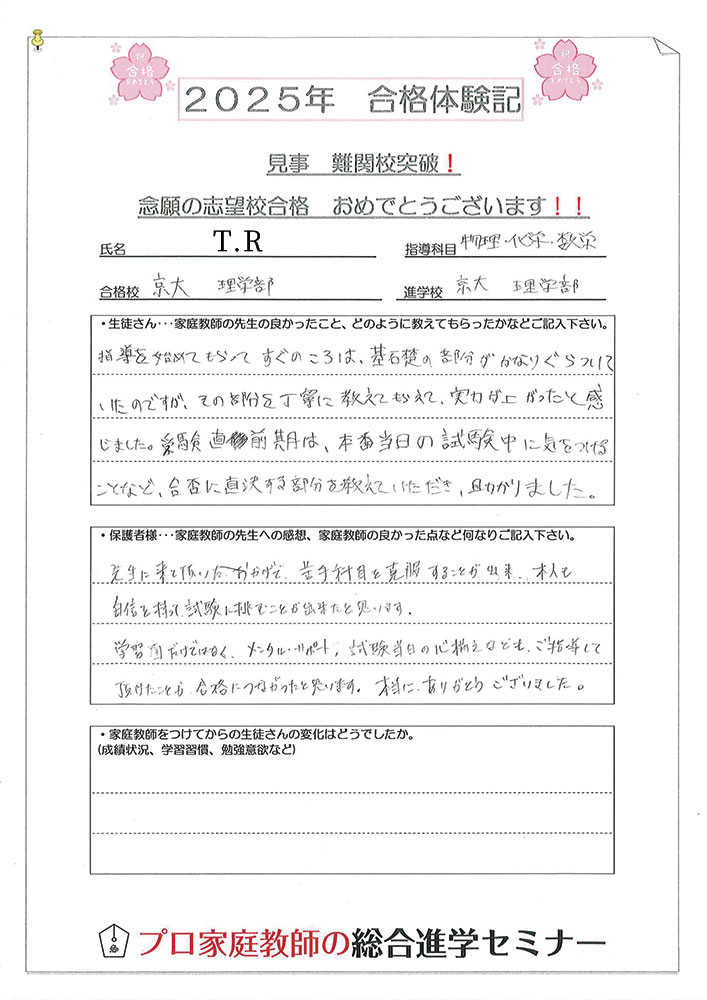 祝
合格
おめでとう
祝
合格
おめでとう
2025年 合格体験記
見事 難関校突破！
念願の志望校合格 おめでとうございます！！
氏名 T.R
指導科目 物理・化学・数学
合格校 京大 理学部
進学校 京大 理学部
・生徒さん･･･家庭教師の先生の良かったこと、どのように教えてもらったかなどご記入下さい。
指導を始めてもらって すぐのころは、基礎の部分がかなりぐらついて
いたのですが、その部分を丁寧に教えてもらえて、実力が上がったと感
じました。受験直前期は、本番当日の試験中に気をつける
ことなど、合否に直決する部分を教えていただき、助かりました。
・保護者様･･･家庭教師の先生への感想、家庭教師の良かった点など何なりご記入下さい。
先生に来て頂いたおかげで、苦手科目を克服することが出来、本人も
自信を持って試験に挑むことが出来たと思います。
学習面だけではなく、メンタルサポート、試験当日の心構えなども、ご指導して
頂けたことが、合格につながったと思います。本当に、ありがとうございました。
・家庭教師をつけてからの生徒さんの変化はどうでしたか。
(成績状況、学習習慣、勉強意欲など)
プロ家庭教師の総合進学セミナー